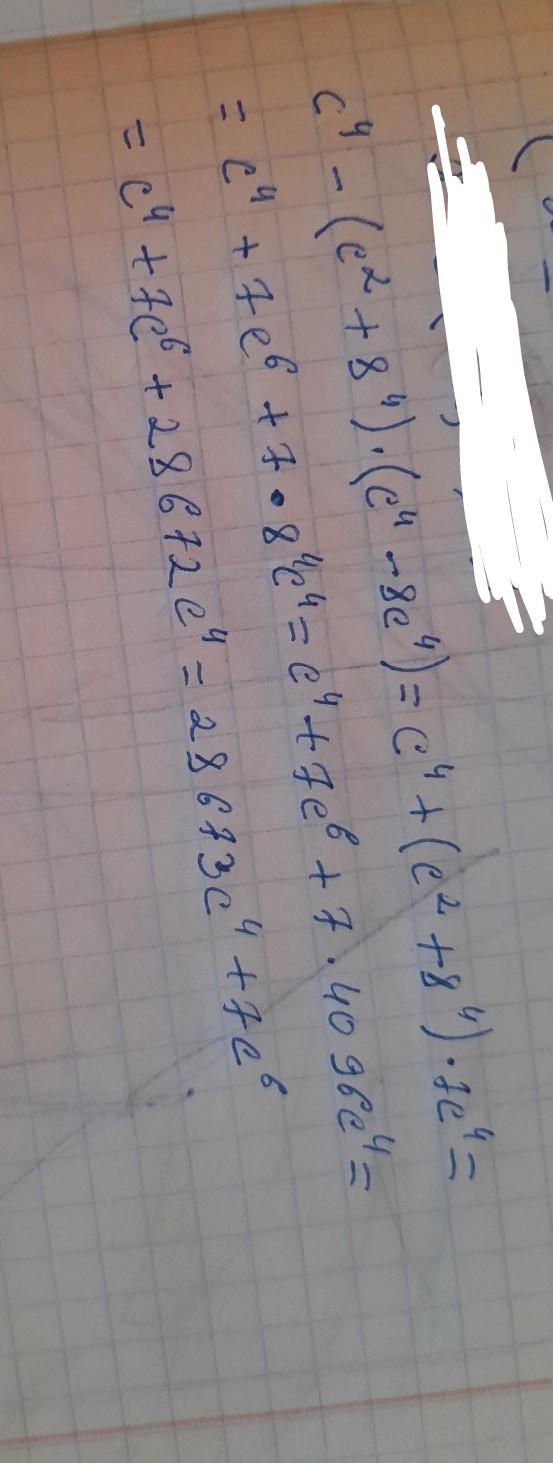 c⁴ - (c² + 8⁴) · (c⁴ - 8c⁴) = c⁴ + (c² + 8⁴) · 7c⁴ =
= c⁴ + 7c⁶ + 7 · 8⁴c⁴ = c⁴ + 7c⁶ + 7 · 4096c⁴ =
= c⁴ + 7c⁶ + 28672c⁴ = 28673c⁴ + 7c⁶